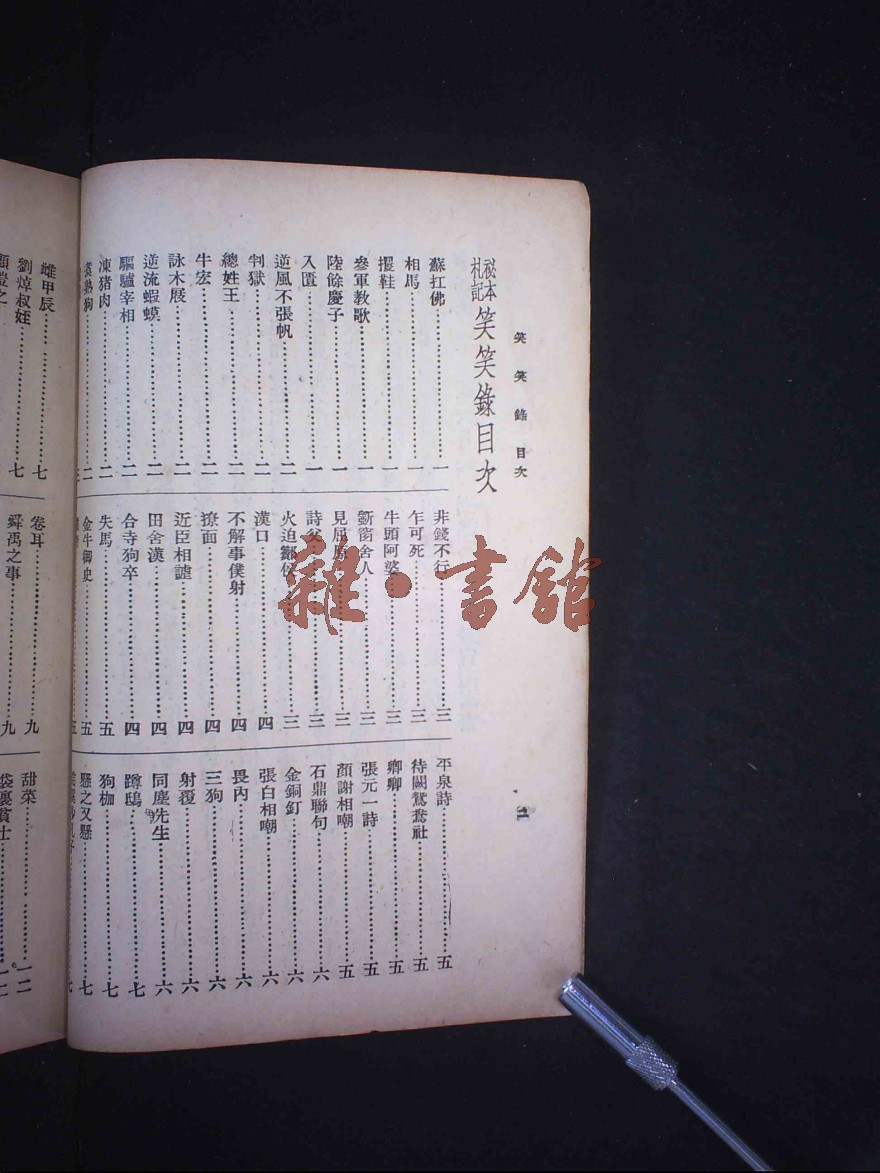 笑笑錄目次
秘本
札記
笑笑錄目次
蘇扛佛……一
相馬……一
攫鞋……一
參軍教歌……一
陸餘慶子……一
入甌……一
逆風不張帆……二
判獄……二
總姓王……二
牛宏……二
詠木屐……二
逆流蝦蟆……二
驅驢宰相……二
凍猪肉……二
非錢不行……三
乍可死……三
牛頭阿婆……三
斵窗舍人……三
見屈原……三
詩父……三
火迫酇侯……三
漢口……四
不解事僕射……四
獠面……四
近臣相謔……四
田舍漢……四
合寺狗卒……四
失馬……五
金牛御史……五
平泉詩……五
待闕鴛鴦社……五
卿卿……五
張元一詩……五
顏謝相嘲……五
石鼎聯句……六
金銅釘……六
張白相嘲……六
畏內……六
三狗……六
射覆……六
同塵先生……六
蹲鴟……七
狗枷……七
懸之又懸……七
雌甲辰……七
劉焯叔姪……七
卷耳……九
舜禹之事……九
甜菜……一二
袋裏貧士
雜·書館